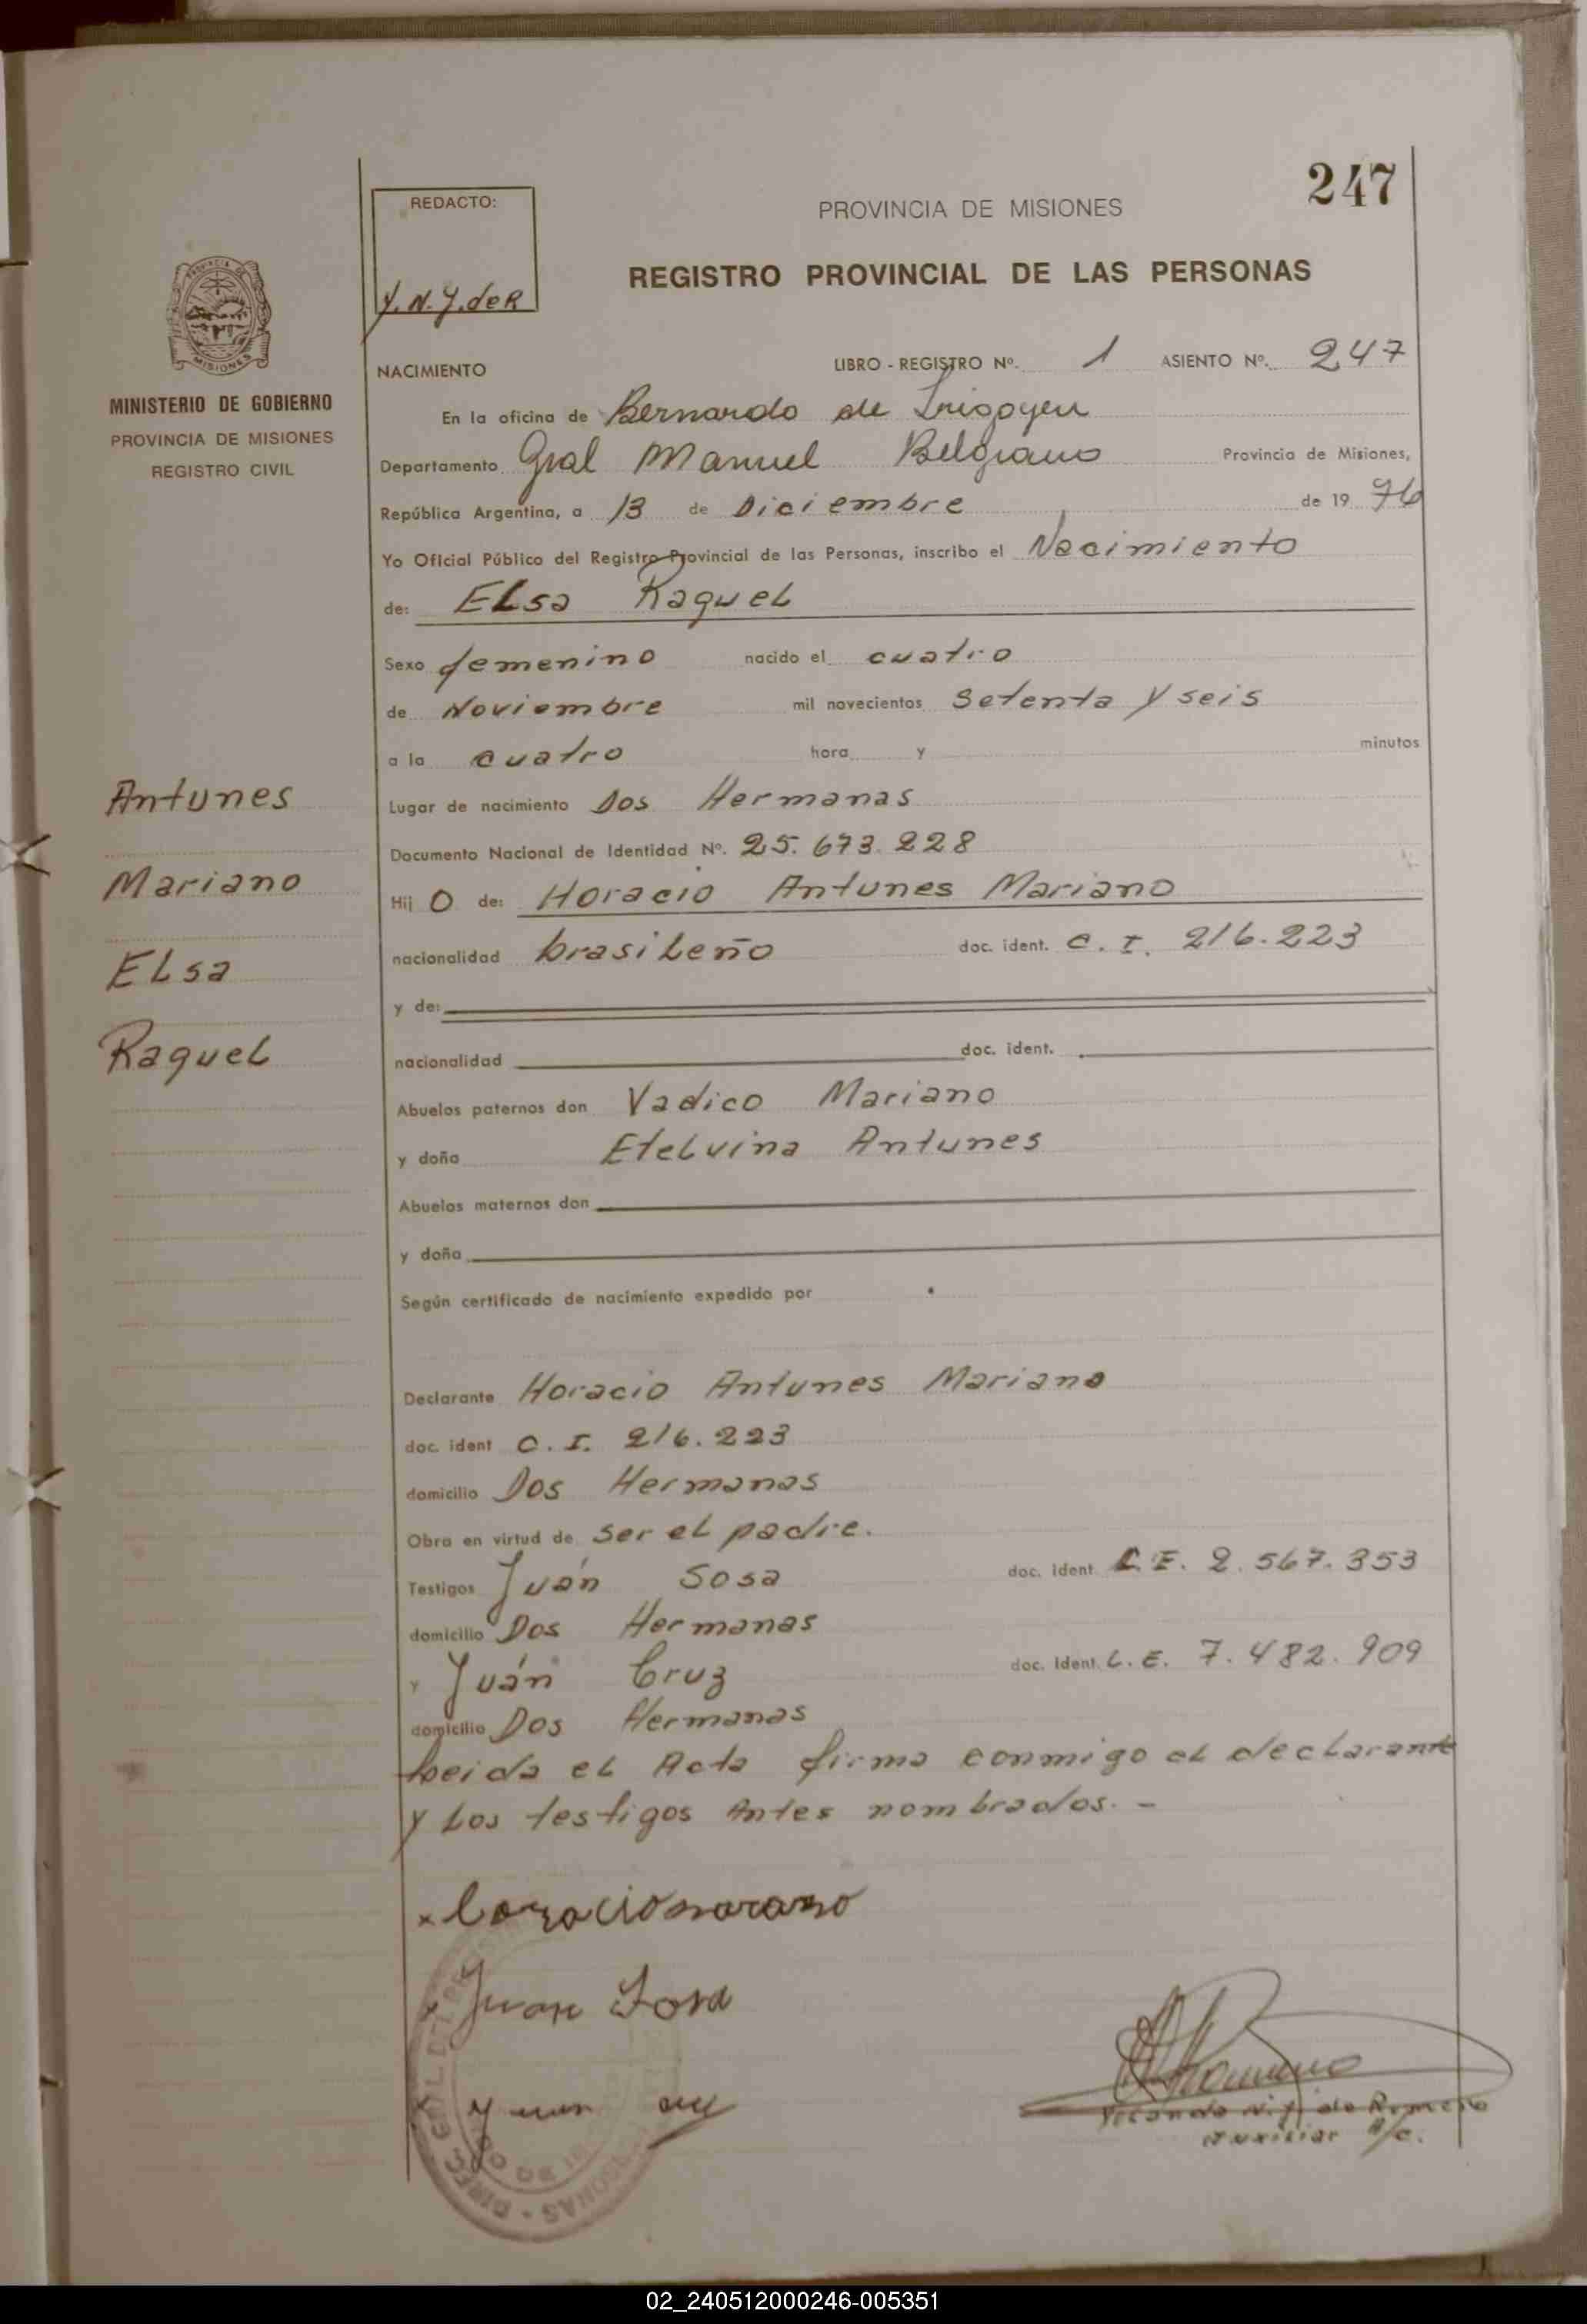 247
REDACTO:
Y.N.Y. de R
PROVINCIA DE MISIONES
REGISTRO PROVINCIAL DE LAS PERSONAS
PROVINCIA DE
MISIONES
MINISTERIO DE GOBIERNO
PROVINCIA DE MISIONES
REGISTRO CIVIL
NACIMIENTO LIBRO - REGISTRO Nº. 1 ASIENTO Nº. 247
En la oficina de Bernardo de Irigoyen
Departamento Gral Manuel Belgrano Provincia de Misiones,
República Argentina, a 13 de Diciembre de 19 76
Yo Oficial Público del Registro Provincial de las Personas, inscribo el Nacimiento
de: Elsa Raquel
Sexo femenino nacido el cuatro
de Noviembre mil novecientos setenta y seis
a la cuatro hora y minutos
Antunes
Mariano
Elsa
Raquel
Lugar de nacimiento Dos Hermanas
Documento Nacional de Identidad Nº. 25.673.228
Hij o de: Horacio Antunes Mariano
nacionalidad brasileño doc. ident. C.I. 216.223
y de:
nacionalidad doc. ident.
Abuelos paternos don Vadico Mariano
y doña Etelvina Antunes
Abuelos maternos don
y doña
Según certificado de nacimiento expedido por
Declarante Horacio Antunes Mariano
doc. ident C.I. 216.223
domicilio Dos Hermanas
Obra en virtud de ser el padre.
Testigos Juán Sosa doc. ident L.E. 2.567.353
domicilio Dos Hermanas
y Juán Cruz doc. ident. L.E. 7.482.909
domicilio Dos Hermanas
Leida el Acta firma conmigo el declarante
y los testigos Antes nombrados. -
x
x Juan Sosa
x
Romero
de Romero
Auxiliar A/c.
02_240512000246-005351